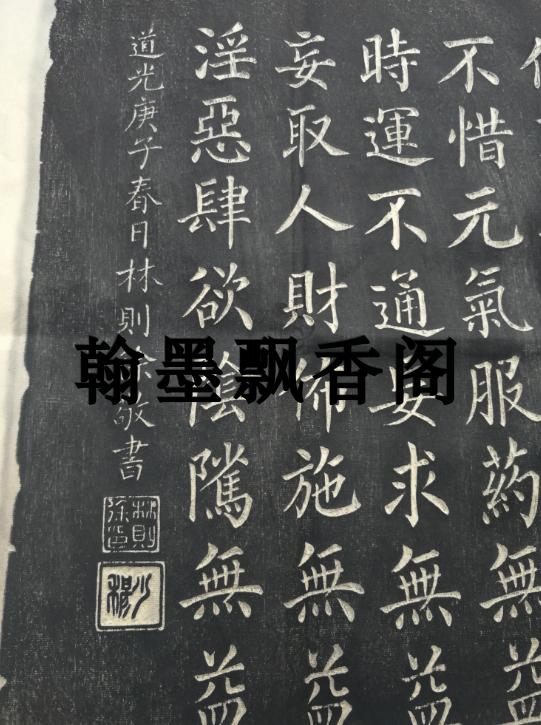 不惜元氣服葯無益
時運不通妄求無益
妄取人財佈施無益
淫惡肆欲陰隲無益
道光庚子春日林則徐敬書
林則徐印
少穆
翰墨飘香阁